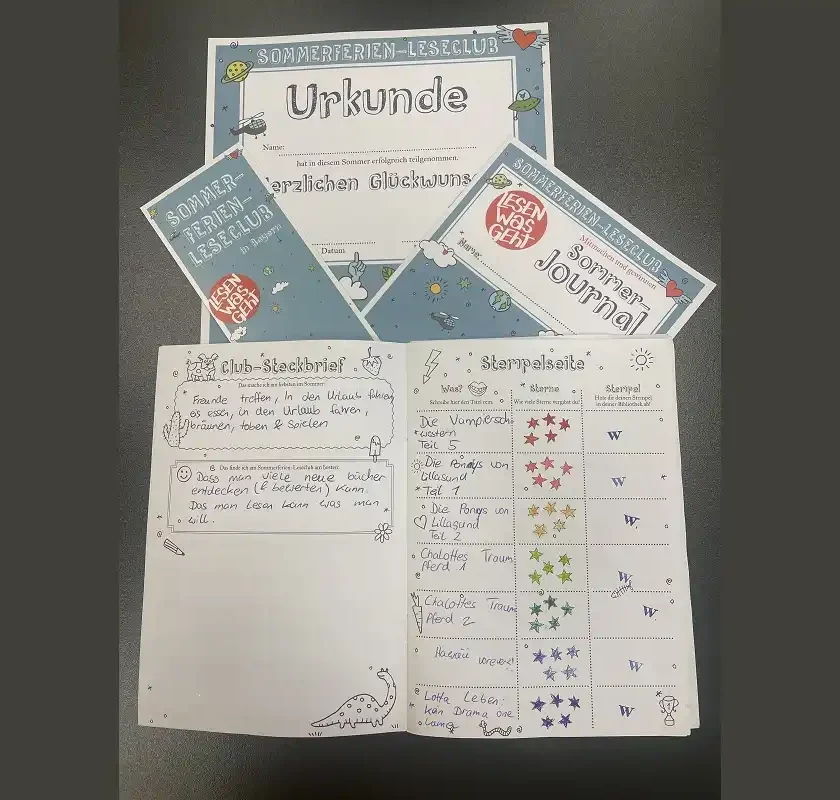 SOMMERFERIEN-LESECLUB
Urkunde
Name:
hat in diesem Sommer erfolgreich teilgenommen.
Herzlichen Glückwuns
Datum
SOMMER-
FERIEN-
LESECLUB
in Bayern
LESEN
WAS
GEHT
SOMMERFERIEN-LESECLUB
LESEN
WAS
GEHT
Mitmachen und gewinnen
Sommer-
Journal
Name:
Club-Steckbrief
Das mache ich am liebsten im Sommer:
Freunde treffen, In den Urlaub fahren,
eis essen, in den Urlaub fahren,
bräunen, toben & Spielen
Das finde ich am Sommerferien-Leseclub am besten:
Dass man viele neue bücher
entdecken (& bewerten) kann.
Das man Lesen kann was man
will.
Stempelseite
Was?
Sterne
Stempel
Schreibe hier den Titel rein.
Wie viele Sterne vergibst du?
Hole dir deinen Stempel
in deiner Bibliothek ab!
Die Vampiersch
western
Teil 5
W
Die Ponnys von
Lillasund
Teil 1
W
Die Ponys von
Lillagund
Teil 2
W
Chalottes Traum
Pferd 1
W
Chalottes Traum
Pferd 2
W
Hawaii
W
Lotta Leben:
kän Drama one
Lama
W
1